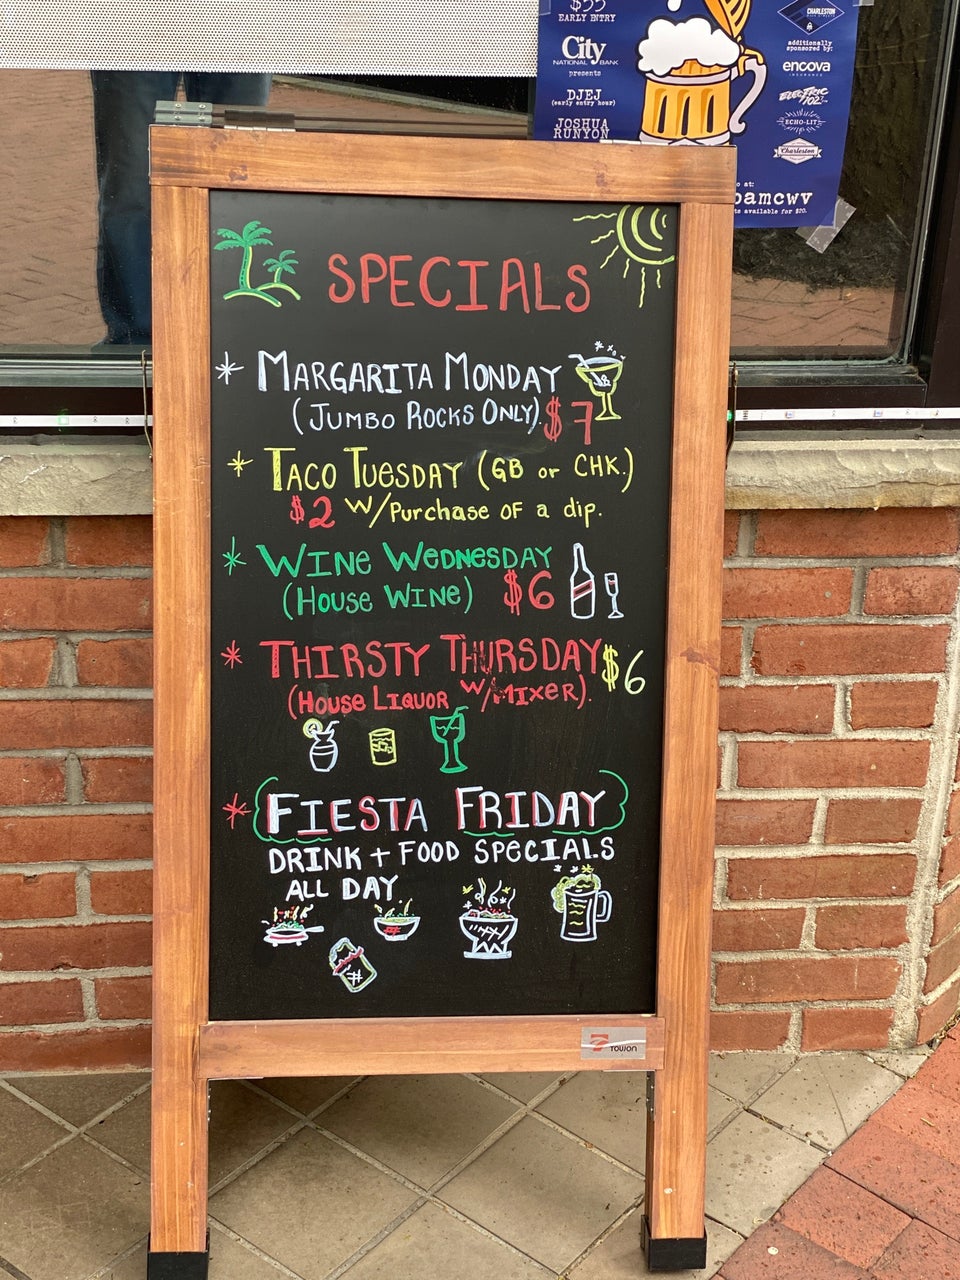 $35
EARLY ENTRY
City
NATIONAL BANK
presents
DJEJ
(early entry hour)
JOSHUA
RUNYON
CHARLESTON
additionally
sponsored by:
encova
INSURANCE
ELECTRIC
102.7
ECHO-LIT
Charleston
o at:
oamcwv
ts available for $20.
SPECIALS
* MARGARITA MONDAY
(JUMBO ROCKS ONLY). $7
* TACO TUESDAY (GB or CHK.)
$2 W/Purchase OF a dip.
* WINE WEDNESDAY
(HOUSE WINE) $6
* THIRSTY THURSDAY $6
(HOUSE LIQUOR W/MIXER).
* FIESTA FRIDAY
DRINK + FOOD SPECIALS
ALL DAY
TOWON